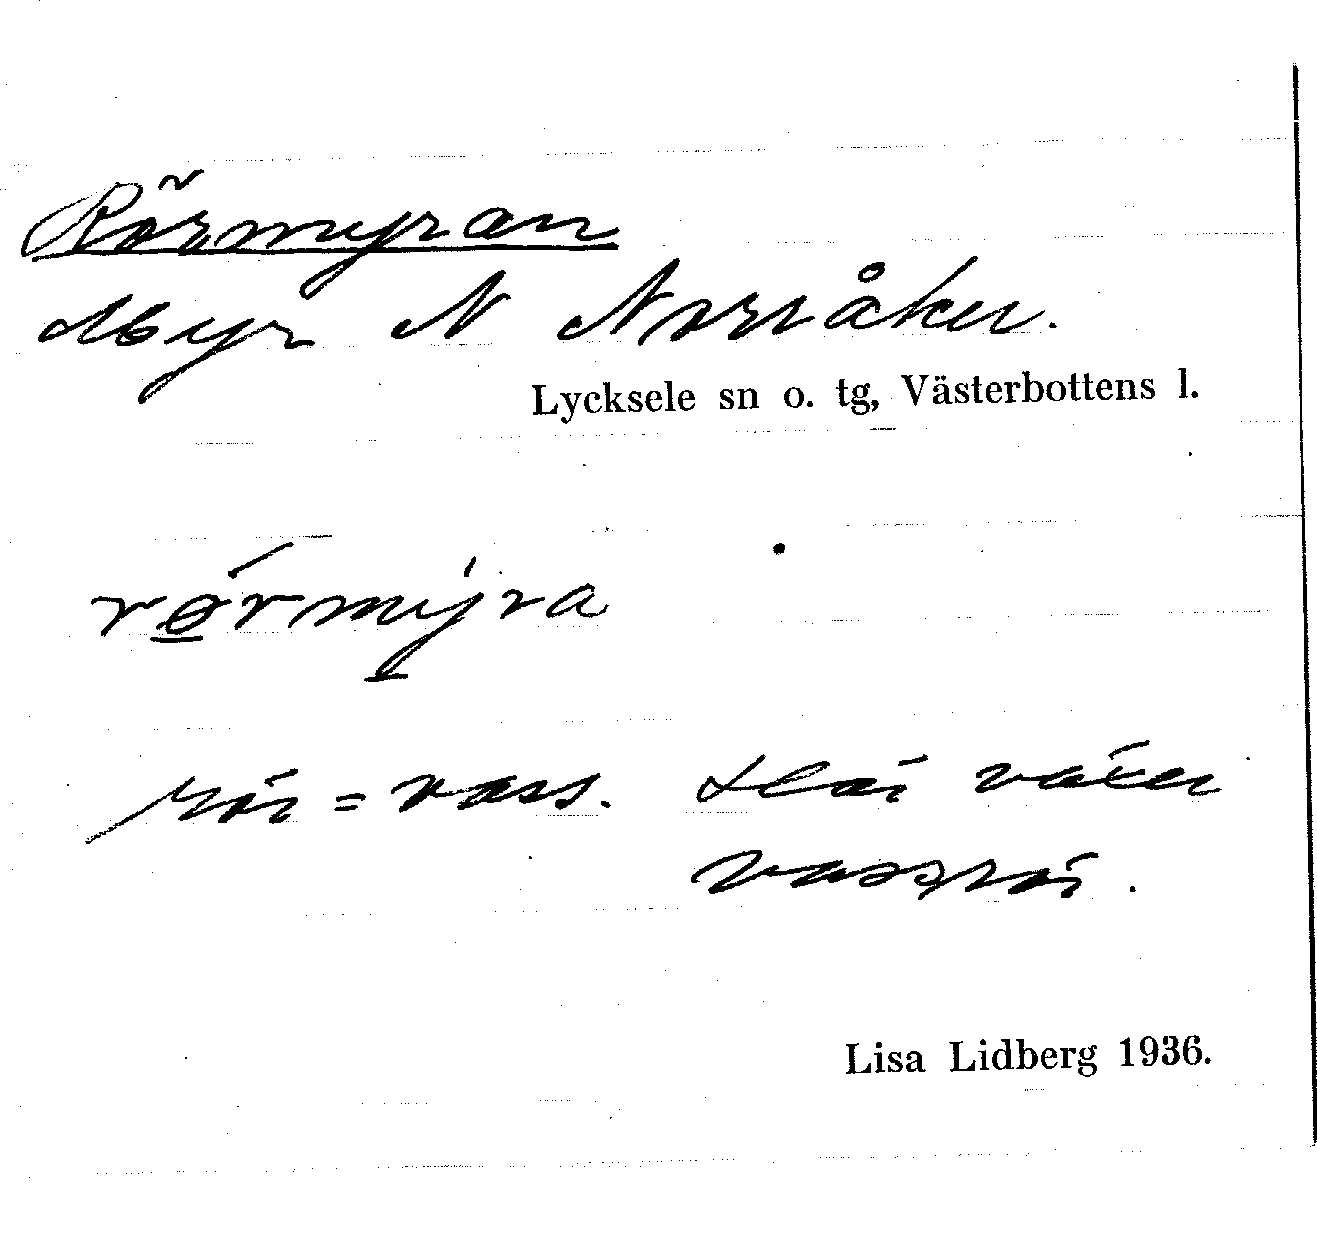 Rörmyran
Myr N Norråker.
Lycksele sn o. tg, Västerbottens l.
rørmyra
rör = vass. Här växer
vassrör.
Lisa Lidberg 1936.